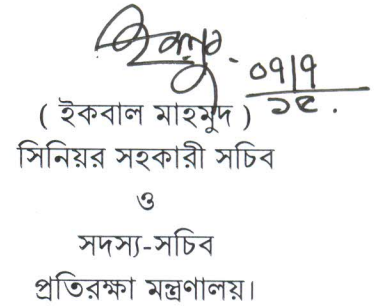 ০৭/৭
১৫.
( ইকবাল মাহমুদ )
সিনিয়র সহকারী সচিব
ও
সদস্য-সচিব
প্রতিরক্ষা মন্ত্রণালয়।